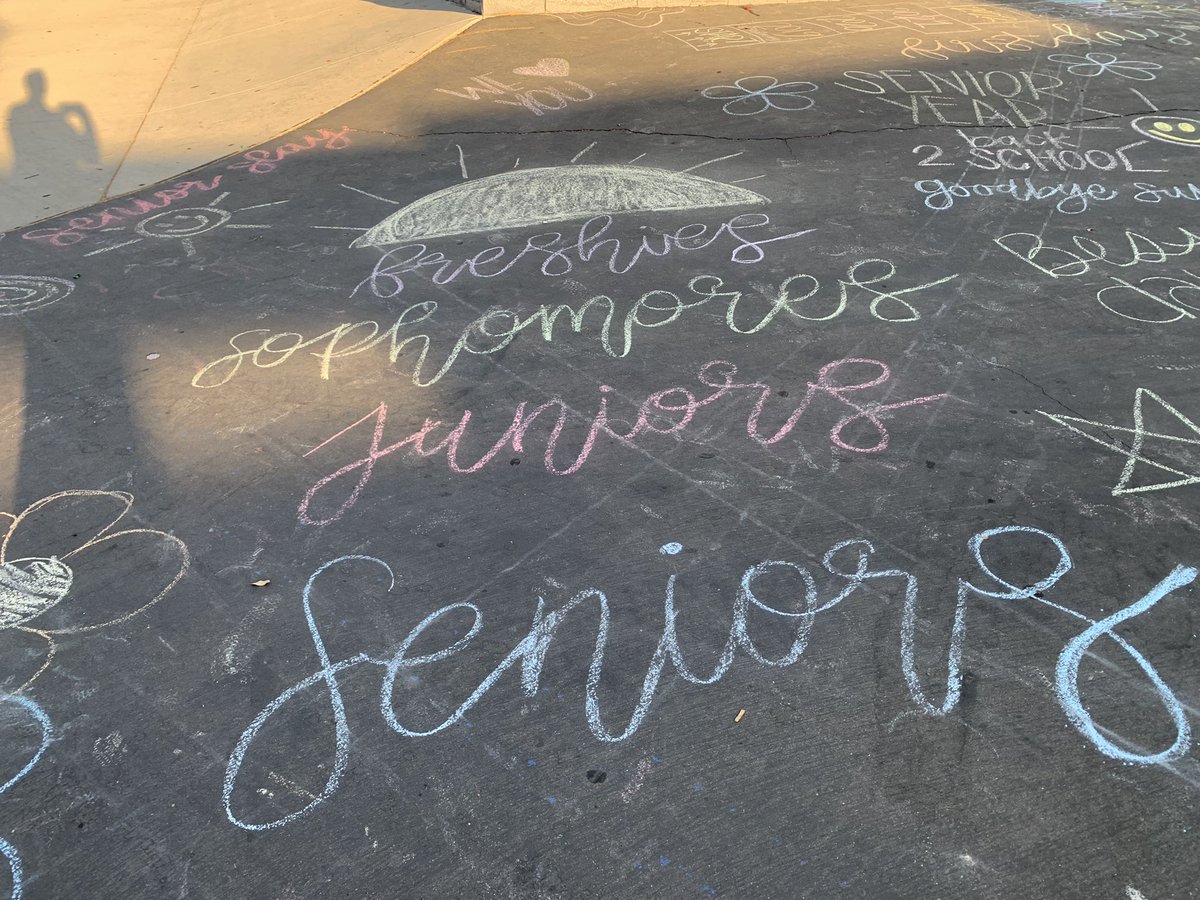 first days
WE
YOU
SENIOR
YEAR
back
2 SCHOOL
goodbye su
senior slay
freshies
sophomores
Best
juniors
seniors